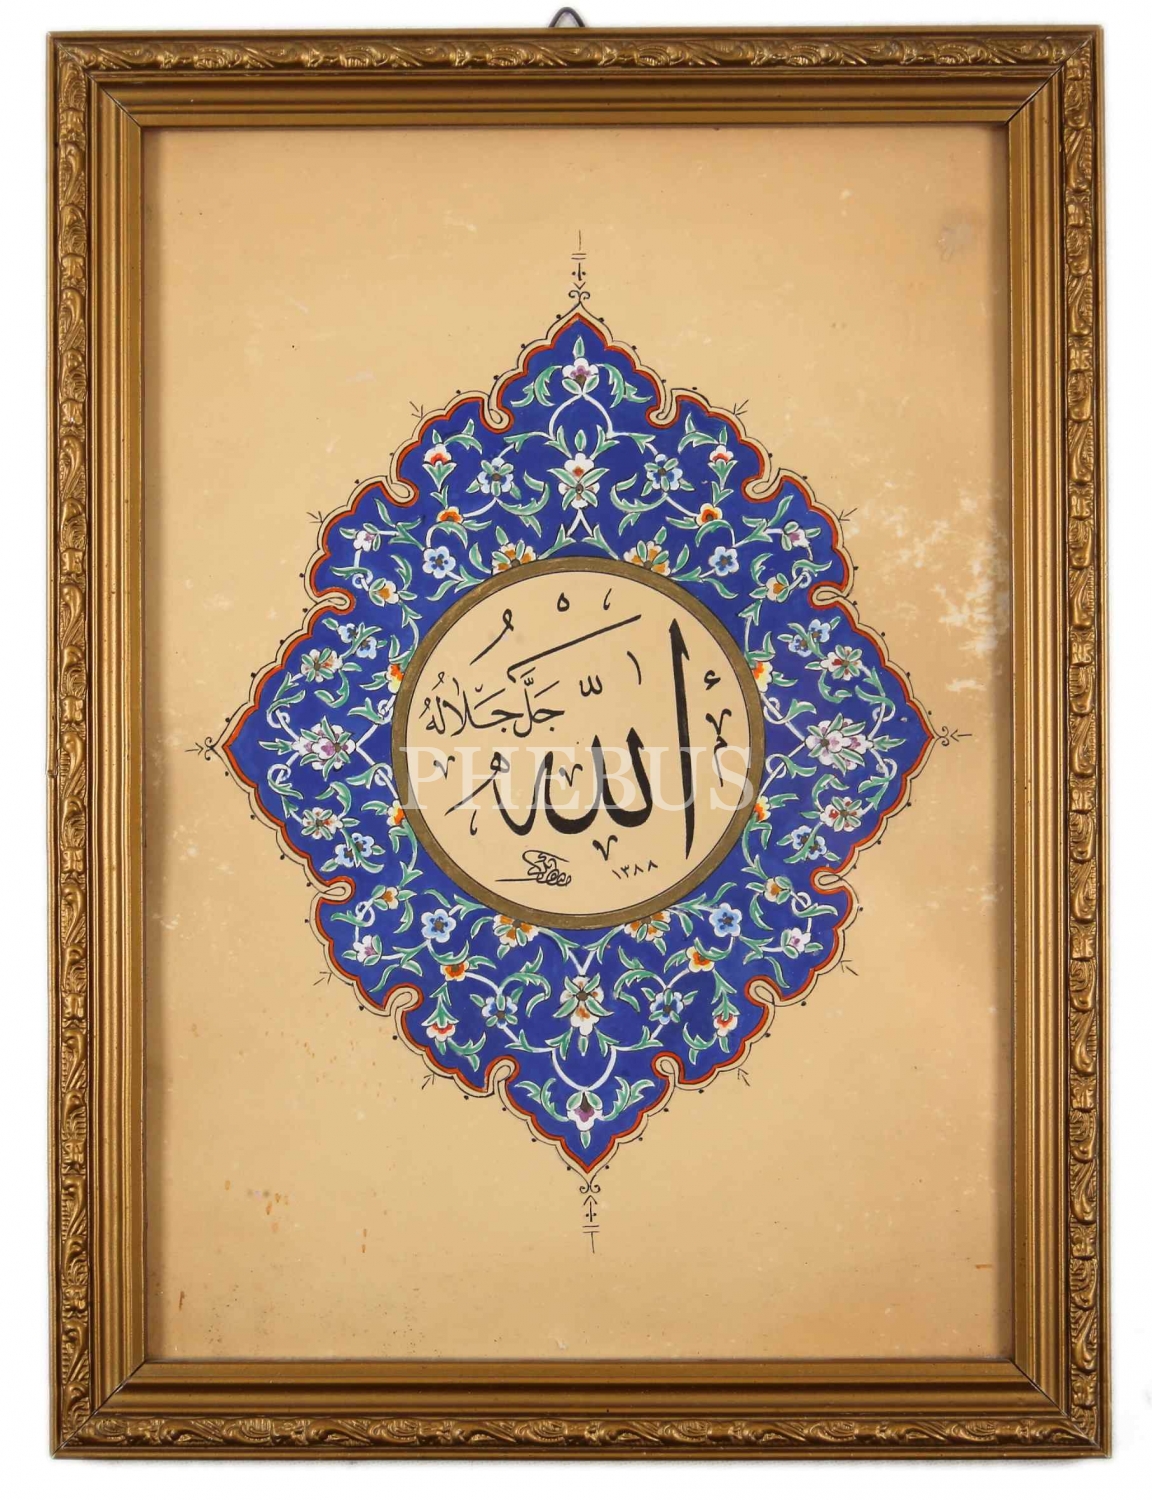 الله
جَلَّ جَلَالُهُ
١٣٨٨
PHEBUS